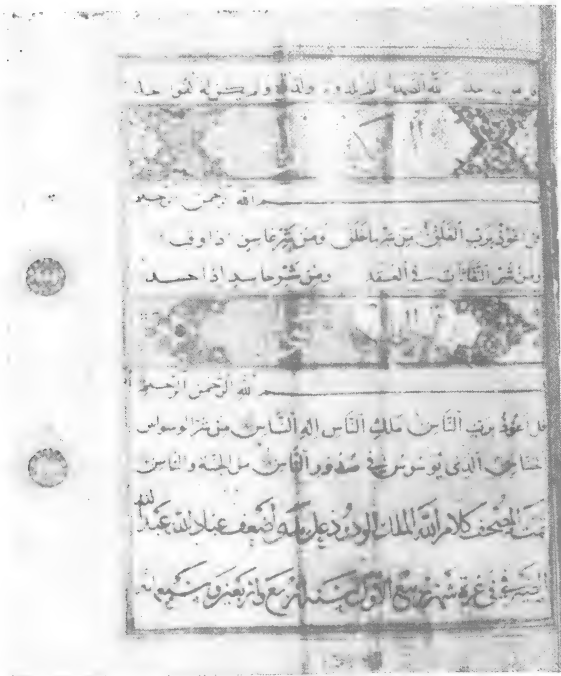 الله الصمد لم يلد ولم يولد ولم يكن له كفوا احد
بسم الله الرحمن الرحيم
قل اعوذ برب الفلق من شر ما خلق ومن شر غاسق اذا وقب
ومن شر النفاثات في العقد ومن شر حاسد اذا حسد
بسم الله الرحمن الرحيم
قل اعوذ برب الناس ملك الناس اله الناس من شر الوسواس
الخناس الذي يوسوس في صدور الناس من الجنة والناس
تمت المصحف كلام الله الملك الودود على يد اضعف عباد الله عبد الله
في غرة شهر ربيع الاول سنة اربع واربعين